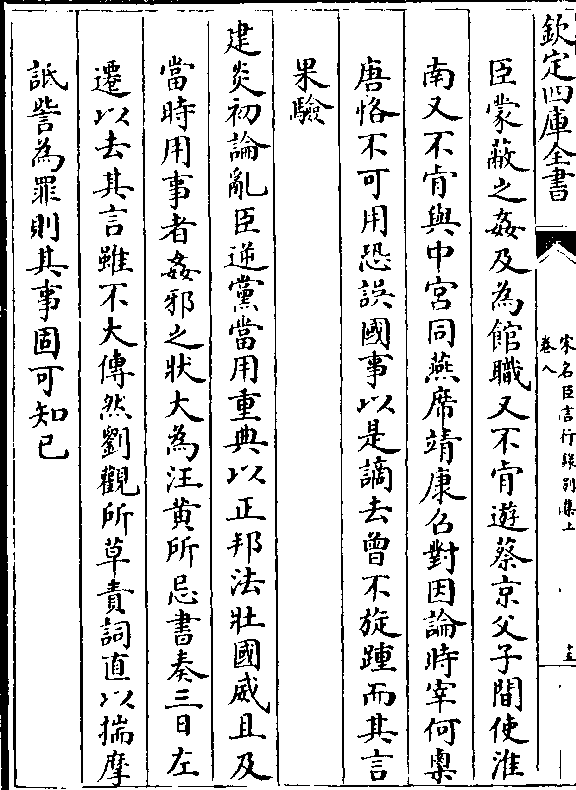 欽定四庫全書
宋名臣言行録別集上
卷八
臣蒙蔽之姦及為館職又不肯遊蔡京父子間使淮
南又不肯與中宮同燕席靖康召對因論時宰何㮚
唐恪不可用恐誤國事以是謫去曾不旋踵而其言
果驗
建炎初論亂臣逆黨當用重典以正邦法壯國威且及
當時用事者姦邪之狀大為汪黄所忌書奏三日左
遷以去其言雖不大傳然劉觀所草責詞直以揣摩
詆訾為罪則其事固可知已